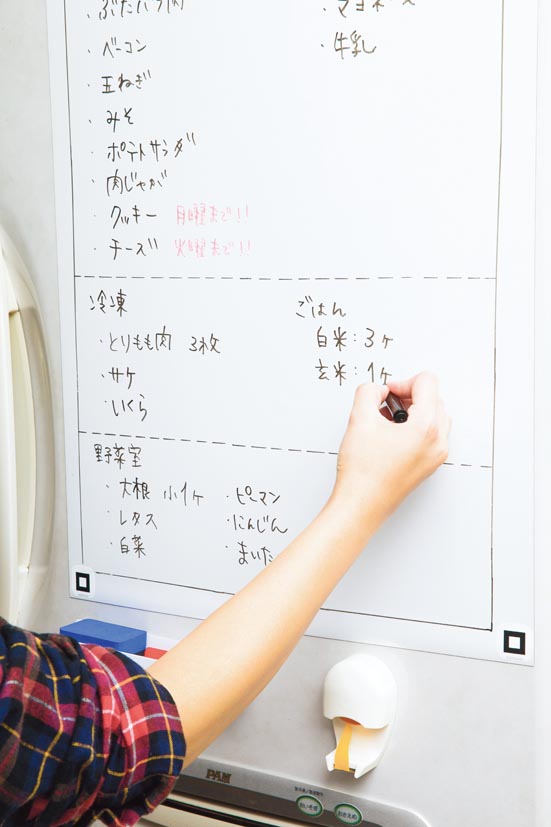 ・ぶたバラ肉
・ベーコン
・玉ねぎ
・みそ
・ポテトサラダ
・肉じゃが
・クッキー 月曜まで!!
・チーズ 火曜まで!!
・マヨネーズ
・牛乳
冷凍
・とりもも肉 3枚
・サケ
・いくら
ごはん
白米：3ヶ
玄米：1ヶ
野菜室
・大根 小1ヶ
・レタス
・白菜
・ピーマン
・にんじん
・まいた
PAM